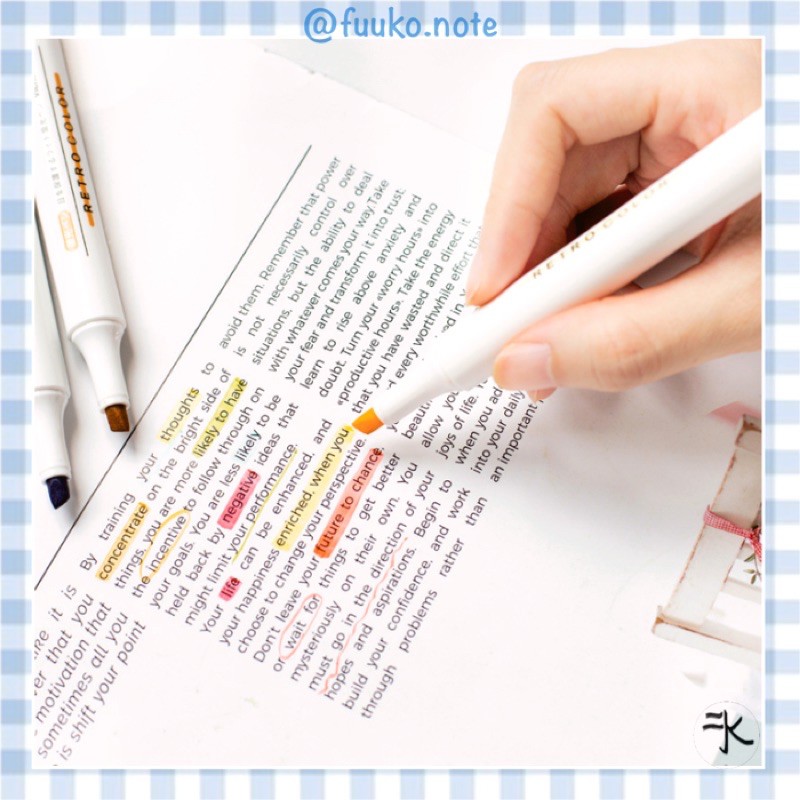 @fuuko.note
RETRO COLOR
RETRO COLOR
ike it is
ver that you
motivation that
sometimes all you
is shift your point
By training your thoughts to
concentrate on the bright side of
things, you are more likely to have
the incentive to follow through on
your goals. You are less likely to be
held back by negative ideas that
might limit your performance.
Your life can be enhanced, and
your happiness enriched, when you
choose to change your perspective.
Don't leave your future to chance,
or wait for things to get better
mysteriously on their own. You
must go in the direction of your
hopes and aspirations. Begin to
build your confidence, and work
through problems rather than
avoid them. Remember that power
is not necessarily control over
situations, but the ability to deal
with whatever comes your way. Take
your fear and transform it into trust;
learn to rise above anxiety and
doubt. Turn your «worry hours» into
«productive hours». Take the energy
that you have wasted and direct it
every worthwhile effort that
ed in
beaut
allow you
joys of life.
when you ad
into your daily
an important